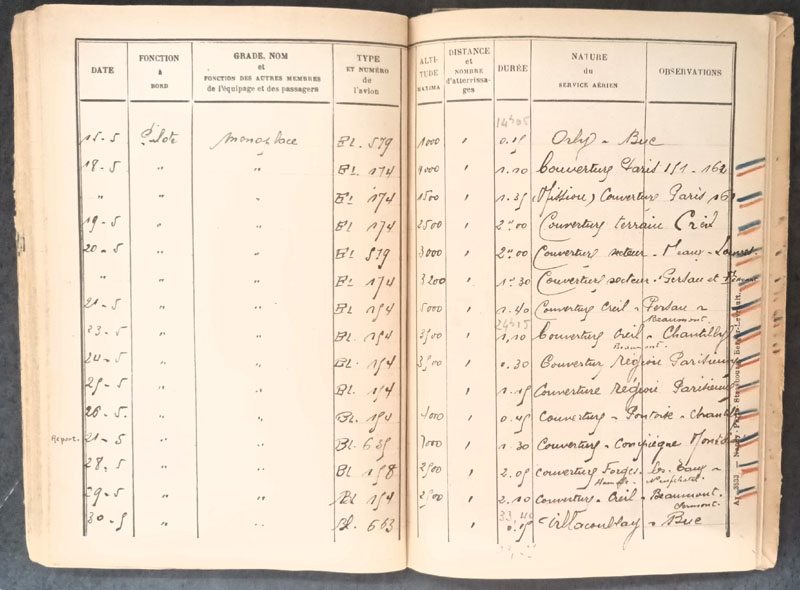 DATE FONCTION à BORD GRADE, NOM et FONCTION DES AUTRES MEMBRES de l'équipage et des passagers TYPE ET NUMÉRO de l'avion ALTI-TUDE MAXIMA DISTANCE et NOMBRE d'atterrissages DURÉE NATURE du SERVICE AÉRIEN OBSERVATIONS
14h05
15-5 Pilote monoplace Bl. 579 1000 " 0.15 Orly - Buc
18-5 " " Bl 174 4000 " 1.10 Couverture Paris 151-162
" " " Bl 174 1500 " 1.35 (Mission) Couverture Paris
19-5 " " Bl 174 2500 " 2h00 Couverture terrain Creil
20-5 " " Bl 579 3000 " 2h00 Couverture secteur - Meaux -
" " " Bl 174 3200 " 1h30 Couverture secteur - Persan et
21-5 " " Bl 154 5000 " 1.40 Couverture Creil - Persan -
Beaumont.
24h15
23-5 " " Bl. 154 3500 " 1,10 Couverture Creil - Chantilly
Beaumont.
24-5 " " Bl. 154 3500 " 0.30 Couverture Région Parisienne
25-5 " " Bl. 154 " 1.15 Couverture Région Parisienne
26-5. " " Bl. 154 4000 " 0.45 Couverture - Pontoise - Chantilly
Report. 21-5 " " Bl. 635 7000 " 1.30 Couverture - Compiègne
28.5 " " Bl 158 2500 " 2.05 Couverture Forges les Eaux -
Neufchatel.
29-5 " " Bl. 154 2500 " 2.10 Couverture - Creil - Beaumont.
Clermont.
33,40
30-5 " " Bl. 663 " 0.15 Villacoublay - Buc
Nancy-Paris-Strasbourg, Berger-Levrault